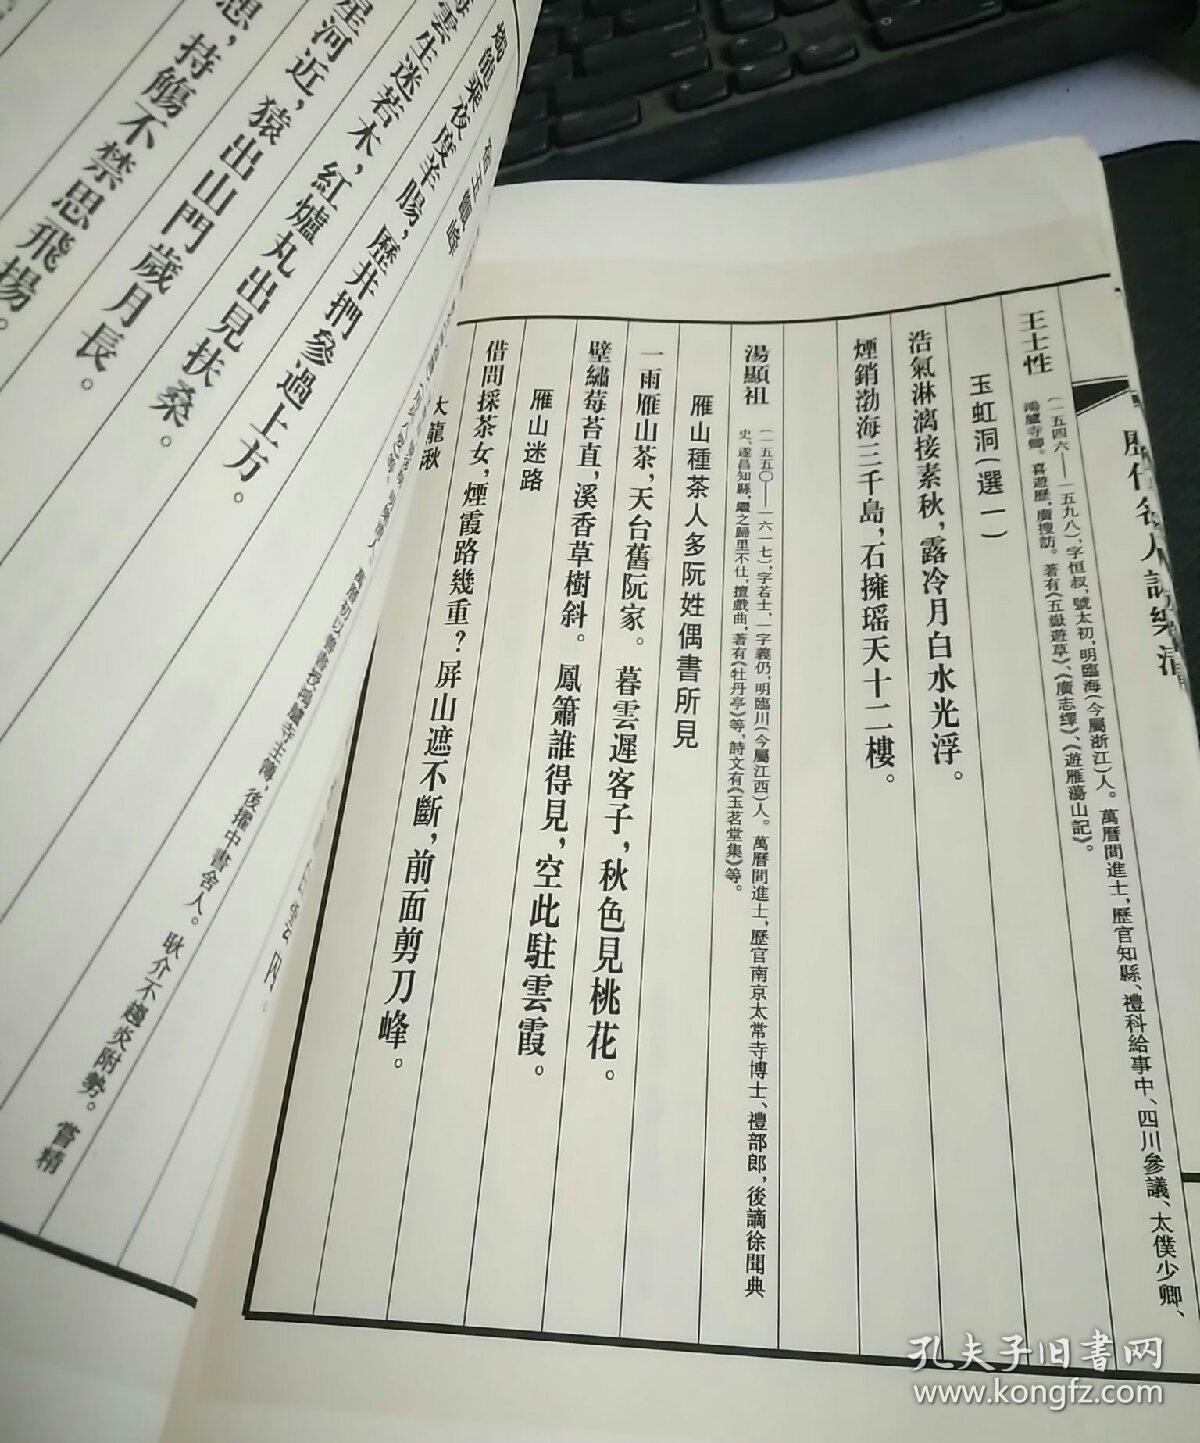 王士性
(一五四六——一五九八),字恒叔,號太初,明臨海(今屬浙江)人。萬曆間進士,歷官知縣、禮科給事中、四川參議、太僕少卿、
鴻臚寺卿。喜遊歷,廣搜訪。著有《五嶽遊草》、《廣志繹》、《遊雁蕩山記》。
玉虹洞(選一)
浩氣淋漓接素秋,露冷月白水光浮。
煙銷渤海三千島,石擁瑶天十二樓。
湯顯祖
(一五五〇——一六一七),字若士、一字義仍,明臨川(今屬江西)人。萬曆間進士,歷官南京太常寺博士、禮部郎,後謫徐聞典
史、遂昌知縣,繼之歸里不仕,擅戲曲,著有《牡丹亭》等,詩文有《玉茗堂集》等。
雁山種茶人多阮姓偶書所見
一雨雁山茶,天台舊阮家。暮雲遲客子,秋色見桃花。
壁繡莓苔直,溪香草樹斜。鳳簫誰得見,空此駐雲霞。
雁山迷路
借問採茶女,煙霞路幾重?屏山遮不斷,前面剪刀峰。
大龍湫
萬曆初以善書授鴻臚寺主簿,後擢中書舍人。耿介不趨炎附勢。嘗精
乘夜度羊腸,歷井捫參過上方。
雲生迷若木,紅爐丸出見扶桑。
星河近,猿出山門歲月長。
想,持觴不禁思飛揚。
孔夫子旧書网
www.kongfz.com